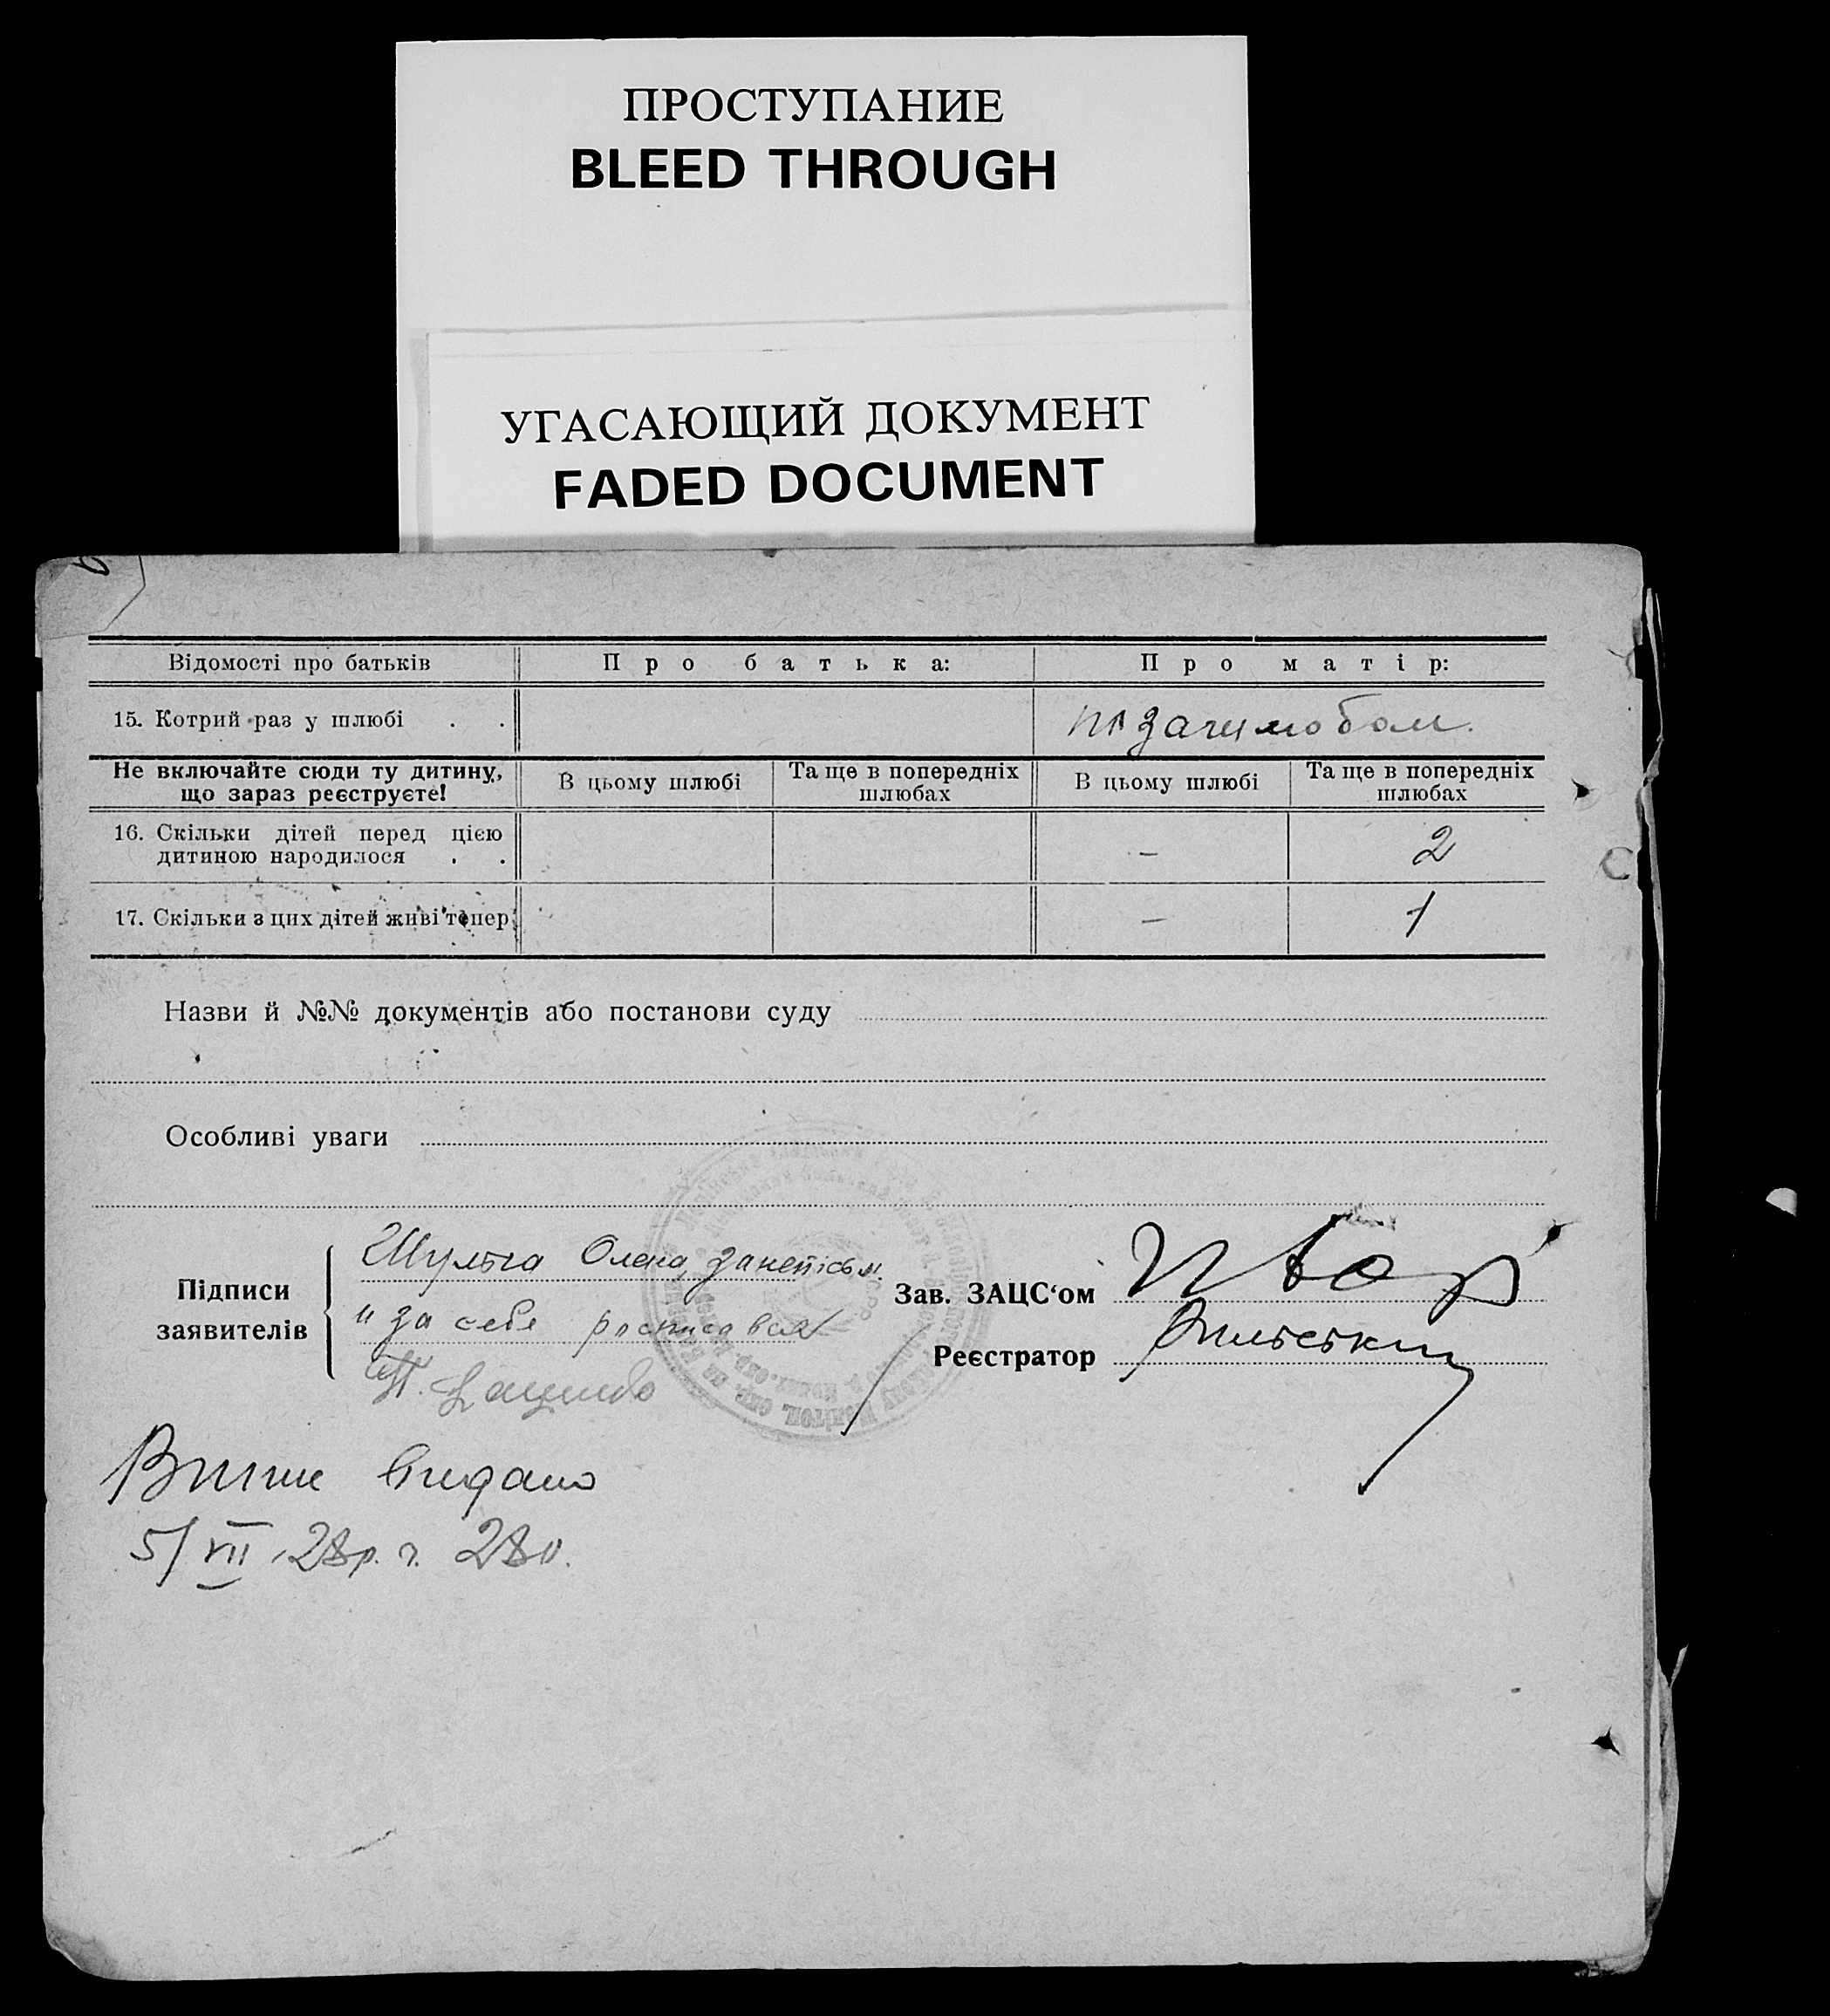 ПРОСТУПАНИЕ
BLEED THROUGH
УГАСАЮЩИЙ ДОКУМЕНТ
FADED DOCUMENT
Відомості про батьків Про батька: Про матір:
15. Котрий раз у шлюбі . . позашлюбом.
Не включайте сюди ту дитину, що зараз реєструєте! В цьому шлюбі Та ще в попередніх шлюбах В цьому шлюбі Та ще в попередніх шлюбах
16. Скільки дітей перед цією
дитиною народилося . . – 2
17. Скільки з цих дітей живі тепер – 1
Назви й №№ документів або постанови суду
Особливі уваги
Підписи
заявителів
Шульга Олена,
и за себе росписався
Зав. ЗАЦС‘ом
Реєстратор
Видано
5/VII 28р.